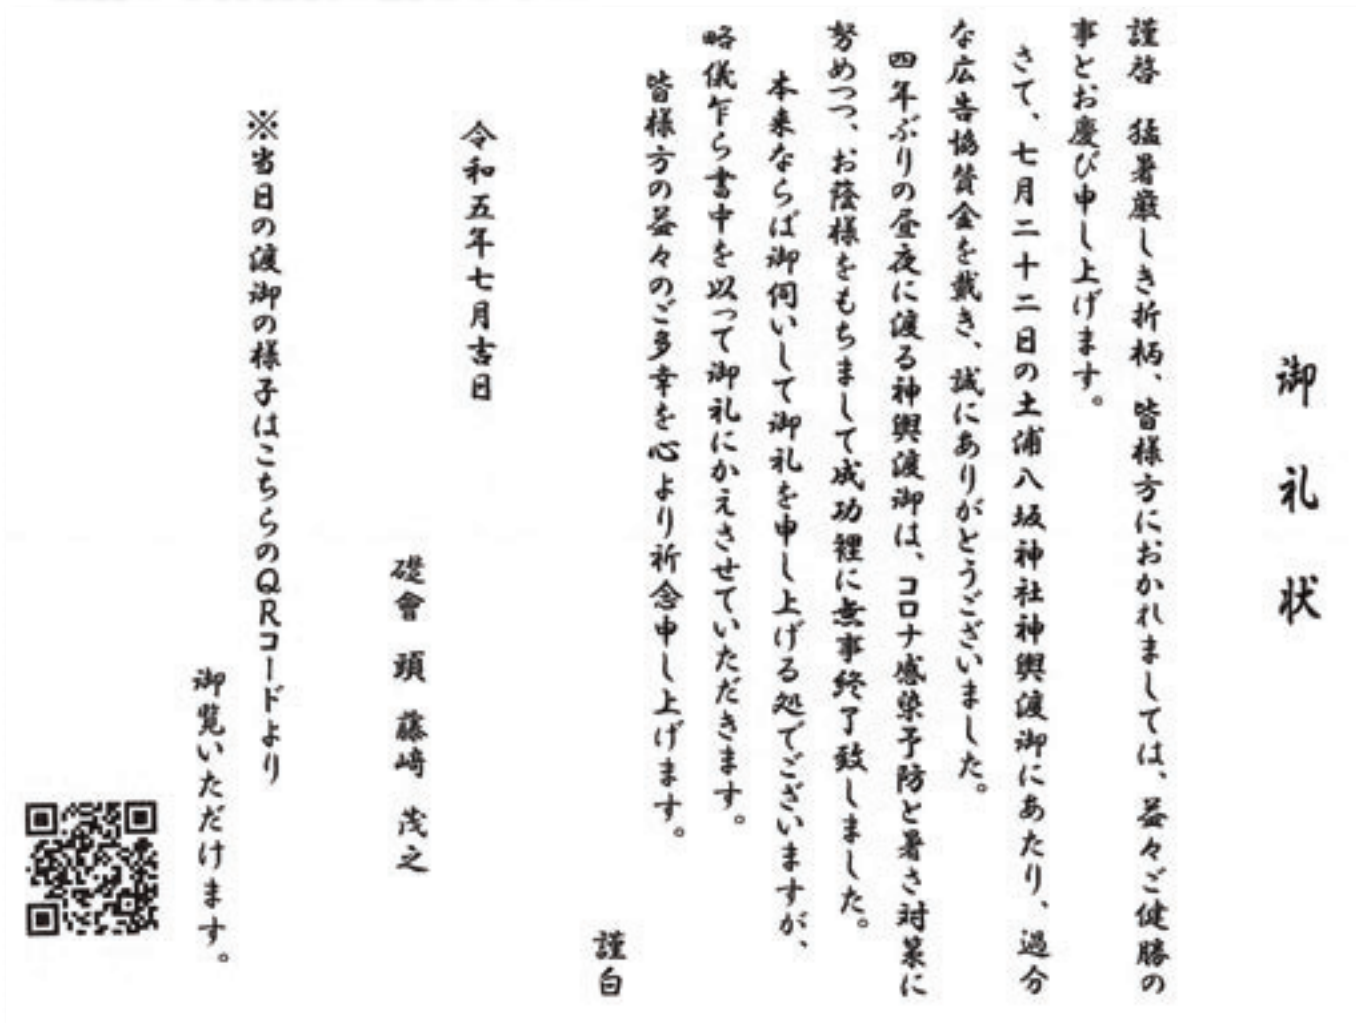 御礼状
謹啓　猛暑厳しき折柄、皆様方におかれましては、益々ご健勝の
事とお慶び申し上げます。
さて、七月二十二日の土浦八坂神社神輿渡御にあたり、過分
な広告協賛金を戴き、誠にありがとうございました。
四年ぶりの昼夜に渡る神輿渡御は、コロナ感染予防と暑さ対策に
努めつつ、お蔭様をもちまして成功裡に無事終了致しました。
本来ならば御伺いして御礼を申し上げる処でございますが、
略儀乍ら書中を以って御礼にかえさせていただきます。
皆様方の益々のご多幸を心より祈念申し上げます。
謹白
令和五年七月吉日
礎會　頭　藤﨑　茂之
※当日の渡御の様子はこちらのQRコードより
御覧いただけます。